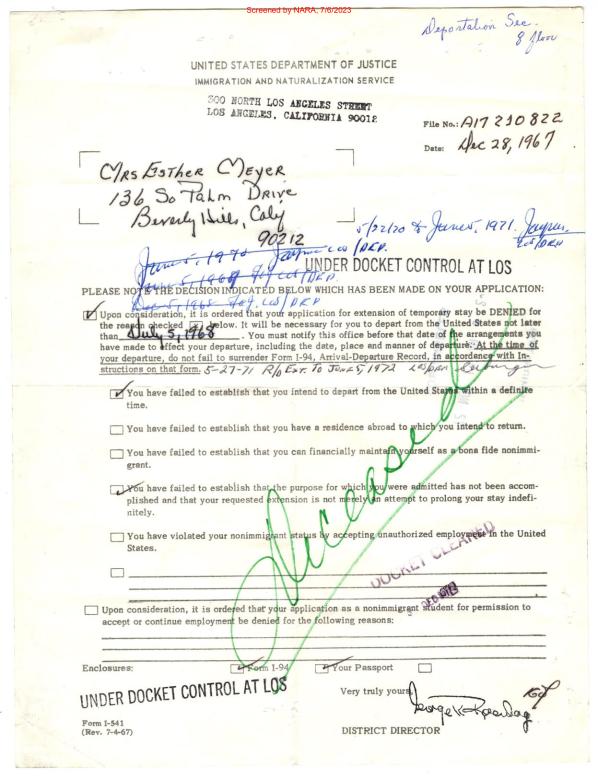 Screened by NARA, 7/6/2023
Deportation Sec.
8 floor
UNITED STATES DEPARTMENT OF JUSTICE
IMMIGRATION AND NATURALIZATION SERVICE
300 NORTH LOS ANGELES STREET
LOS ANGELES, CALIFORNIA 90012
File No.: A17 210 822
Date: Dec 28, 1967
Mrs Esther Meyer
136 So Palm Drive
Beverly Hills, Caly
90212
5/22/70 to June 5, 1971.
LOS/DRP
June 5, 1970 LOS/DRP.
June 5, 1969 LOS/DRP.
UNDER DOCKET CONTROL AT LOS
PLEASE NOTE THE DECISION INDICATED BELOW WHICH HAS BEEN MADE ON YOUR APPLICATION:
Dec 5, 1968 LOS/DRP
Upon consideration, it is ordered that your application for extension of temporary stay be DENIED for
the reason checked below. It will be necessary for you to depart from the United States not later
than July 5, 1968. You must notify this office before that date of the arrangements you
have made to effect your departure, including the date, place and manner of departure. At the time of
your departure, do not fail to surrender Form I-94, Arrival-Departure Record, in accordance with In-
structions on that form. 5-27-71 R/O Ext. to June 5, 1972
You have failed to establish that you intend to depart from the United States within a definite
time.
You have failed to establish that you have a residence abroad to which you intend to return.
You have failed to establish that you can financially maintain yourself as a bona fide nonimmi-
grant.
You have failed to establish that the purpose for which you were admitted has not been accom-
plished and that your requested extension is not merely an attempt to prolong your stay indefi-
nitely.
You have violated your nonimmigrant status by accepting unauthorized employment in the United
States.
Deceased
DOCKET CLEARED
Upon consideration, it is ordered that your application as a nonimmigrant student for permission to
accept or continue employment be denied for the following reasons:
Enclosures: Form I-94 Your Passport
UNDER DOCKET CONTROL AT LOS
Very truly yours,
Form I-541
(Rev. 7-4-67)
DISTRICT DIRECTOR